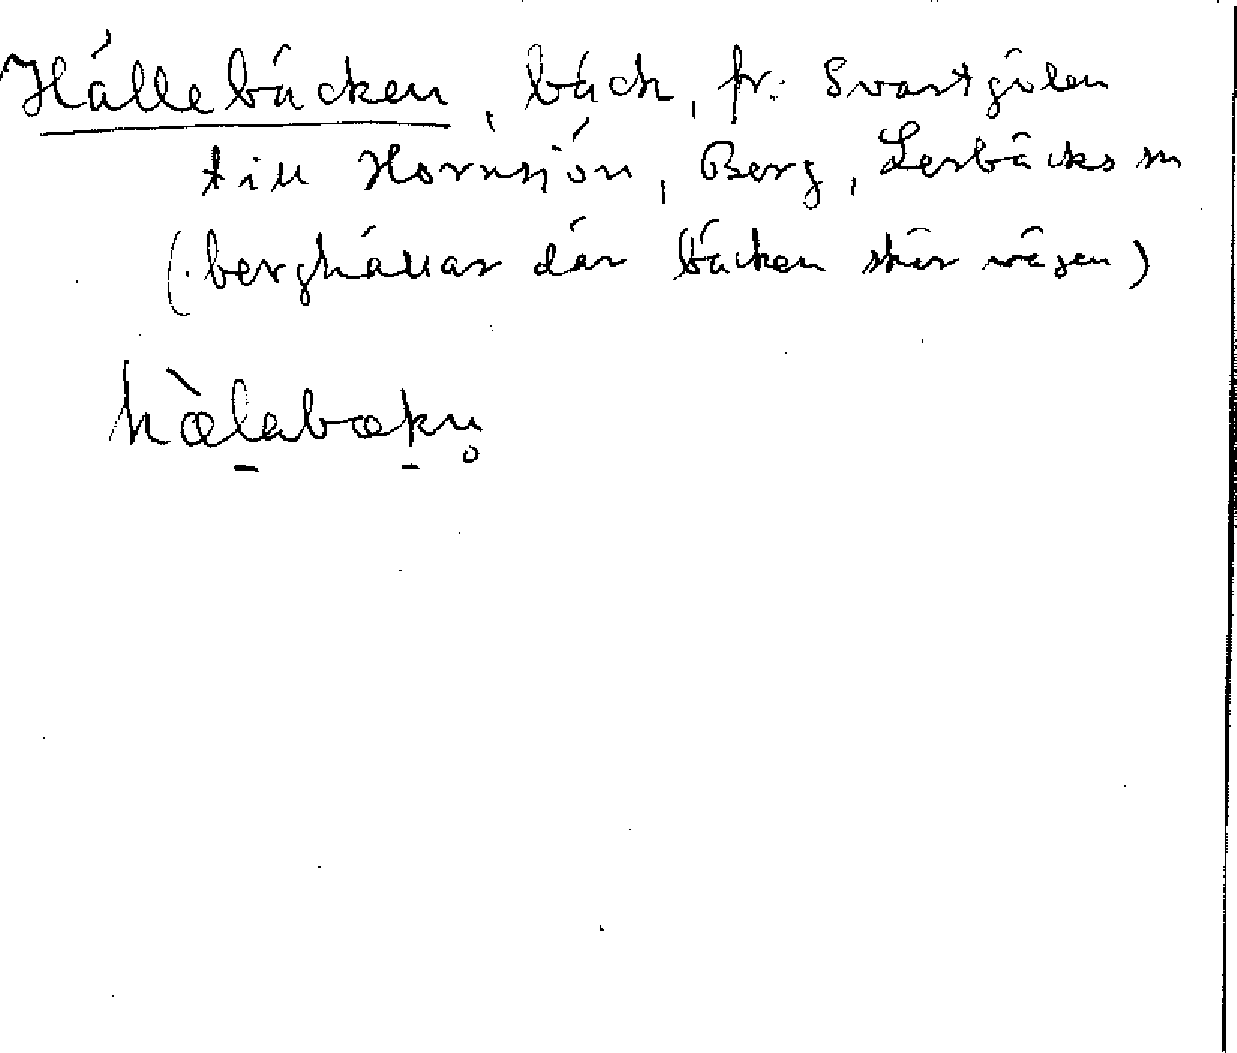 Hällebäcken, bäck, fr. Svartgölen
till Hornsjön, Berg, Lerbäcks sn
(berghällar där bäcken skär vägen)
hæ̀l̠abæk̠n̥